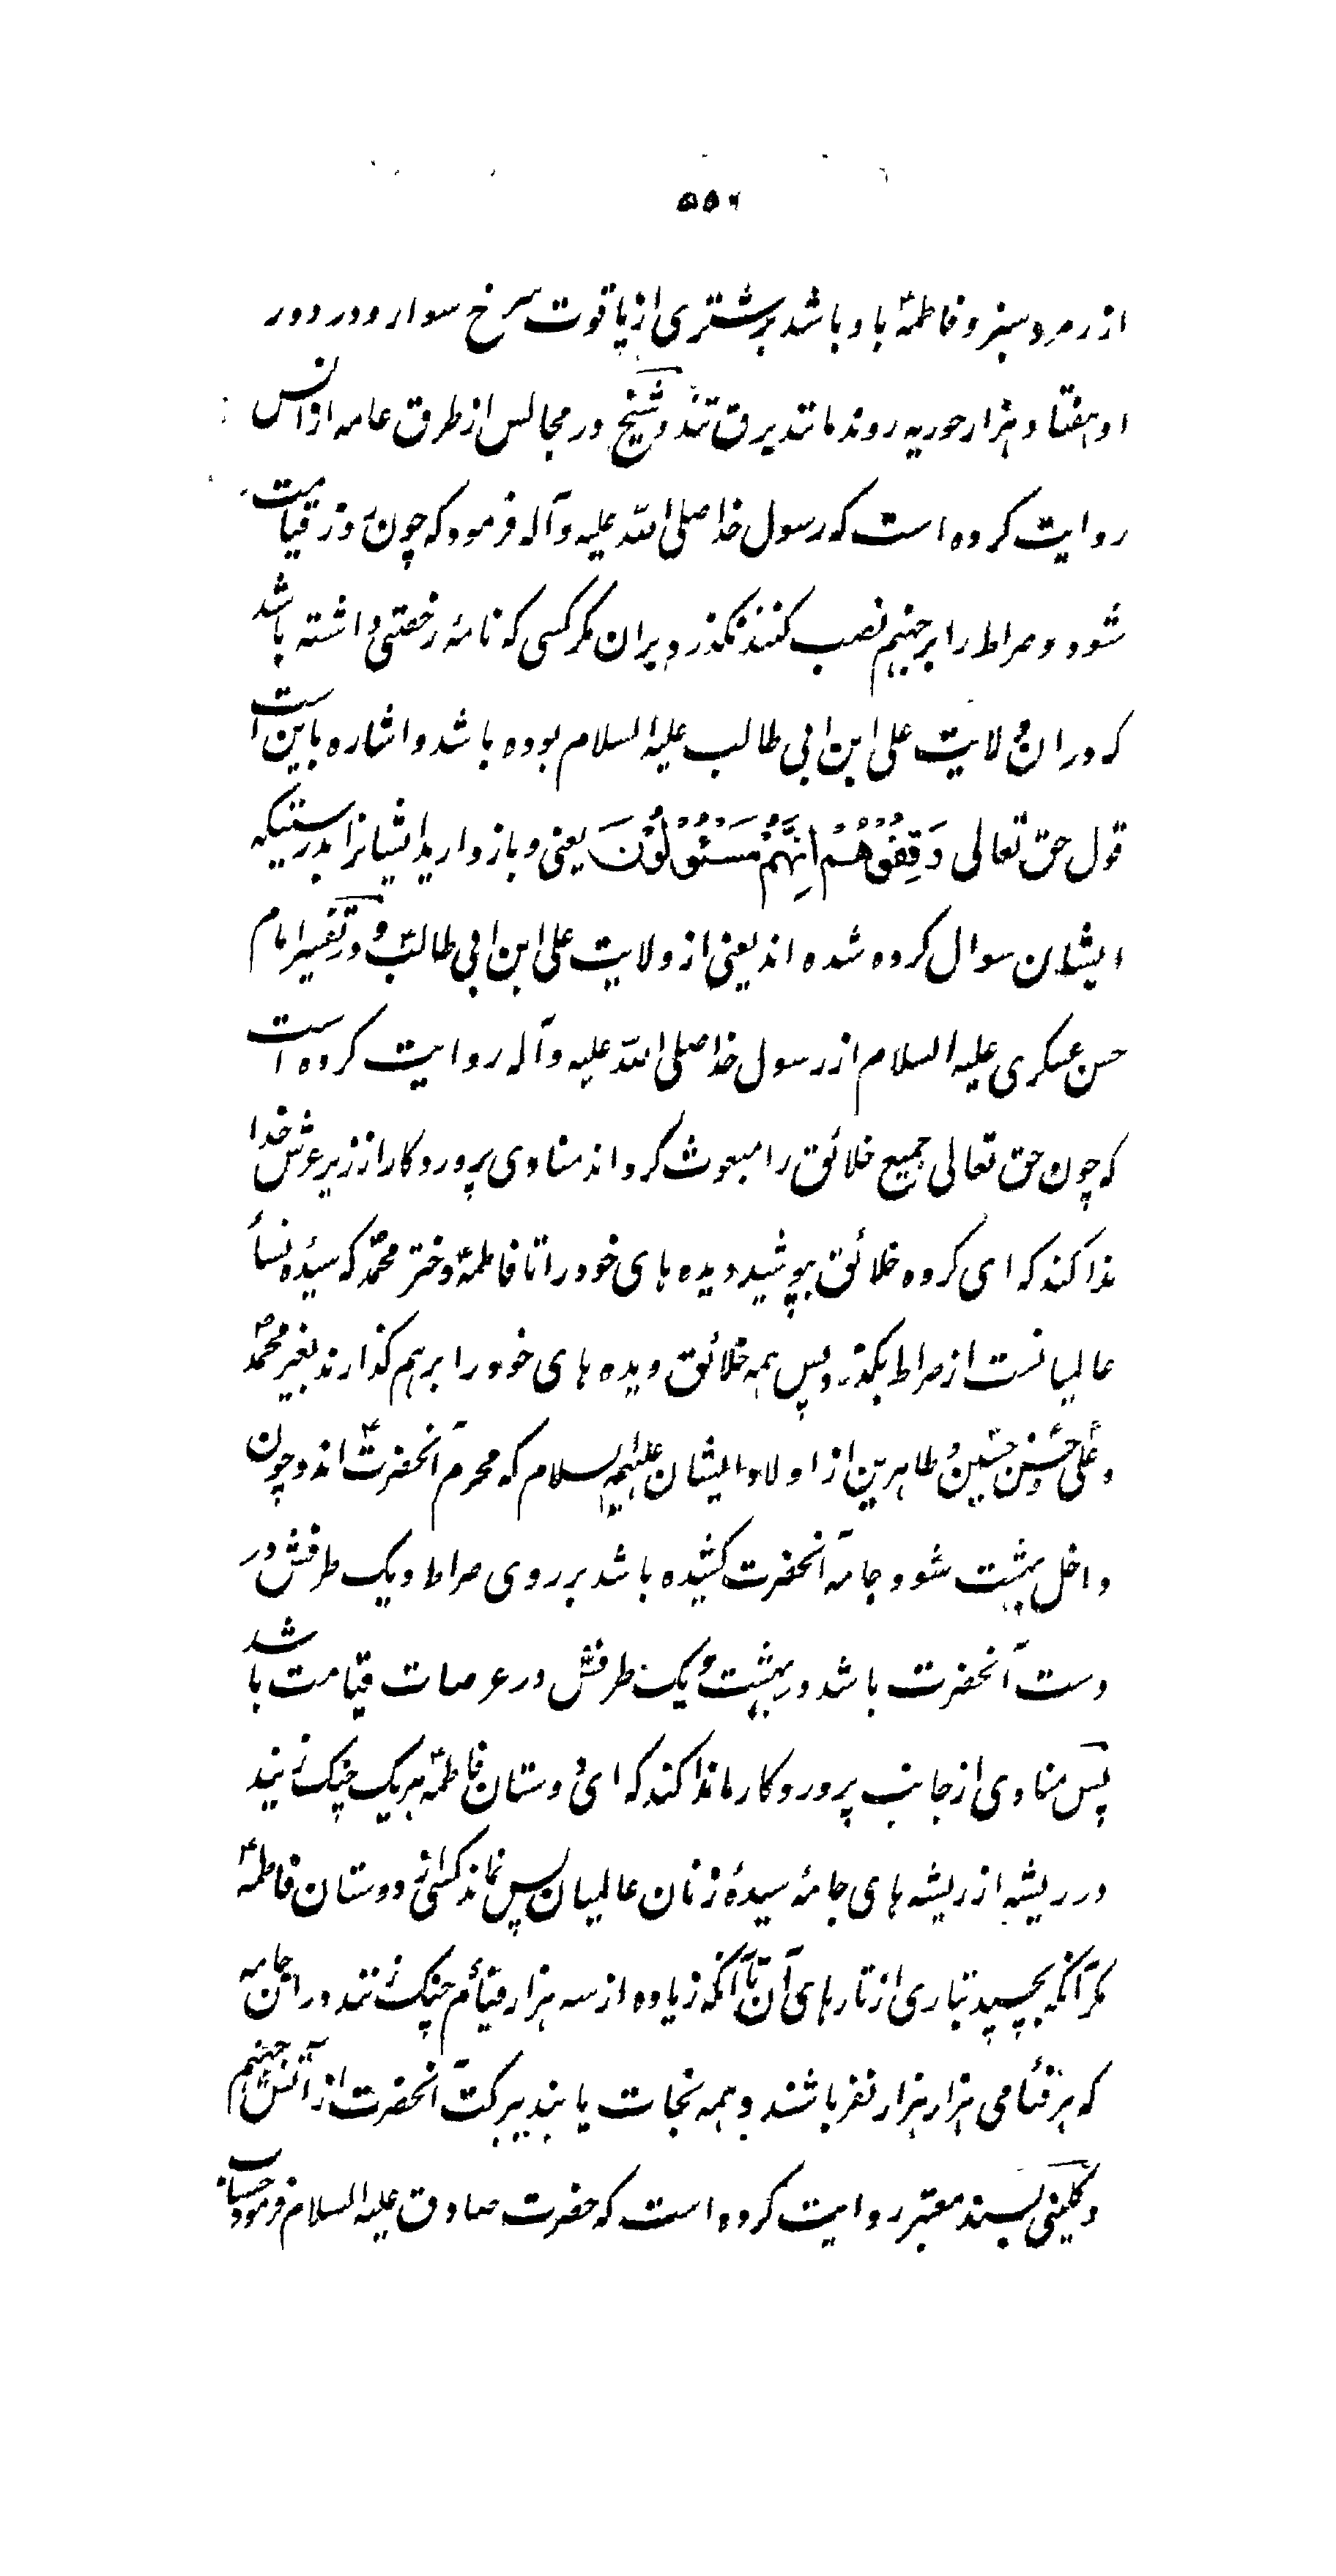 ۵۵۲
از زمرد سبز و فاطمهؑ با و باشد بر شتری از یاقوت سرخ سوار و در دور
او هفتاد هزار حوریه روند مانند برق تند و شیخ در مجالس از طرق عامه از انس
روایت کرده است که رسول خدا صلی الله علیه وآله فرمود که چون روز قیامت
شود و صراط را بر جهنم نصب کنند نگذرد بران مگر کسی که نامهٔ رخصتی داشته باشد
که دران ولایت علی ابن ابی طالب علیه السلام بوده باشد و اشاره باین است
قول حق تعالی وَقِفُوْهُمْ اِنَّهُمْ مَسْئُوْلُوْنَ یعنی و باز دارید ایشانرا بدرستیکه
ایشان سوال کرده شده اند یعنی از ولایت علی ابن ابی طالبؑ و در تفسیر امام
حسن عسکری علیه السلام از رسول خدا صلی الله علیه وآله روایت کرده است
که چون حق تعالی جمیع خلائق را مبعوث گرداند منادی پروردگار از زیر عرش خدا
ندا کند که ای گروه خلائق بپوشید دیده های خود را تا فاطمهؑ دختر محمدؐ که سیدهٔ نسأ
عالمیانست از صراط بگذرد پس همه خلائق دیده های خود را برهم گذارند بغیر محمدؐ
و علیؑ و حسنؑ و حسینؑ و طاهرین از اولاد ایشان علیهم السلام که محرم آنحضرتؑ اند و چون
داخل بهشت شود و جامهٔ آنحضرت کشیده باشد بر روی صراط و یک طرفش در
دست آنحضرت باشد در بهشت و یک طرفش در عرصات قیامت باشد
پس منادی از جانب پروردگار ما ندا کند که ای دوستان فاطمهؑ هریک چنگ زنید
در ریشهٔ از ریشه های جامهٔ سیدهٔ زنان عالمیان پس نماند کسی از دوستان فاطمهؑ
مگر آنکه بچسپد بتاری از تارهای آن تا آنکه زیاده از سه هزار فئام چنگ زنند دران جامه
که هر فئامی هزار هزار نفر باشند و همه نجات یابند ببرکت آنحضرت از آتش جهنم
و کلینی بسند معتبر روایت کرده است که حضرت صادق علیه السلام فرمود حساب